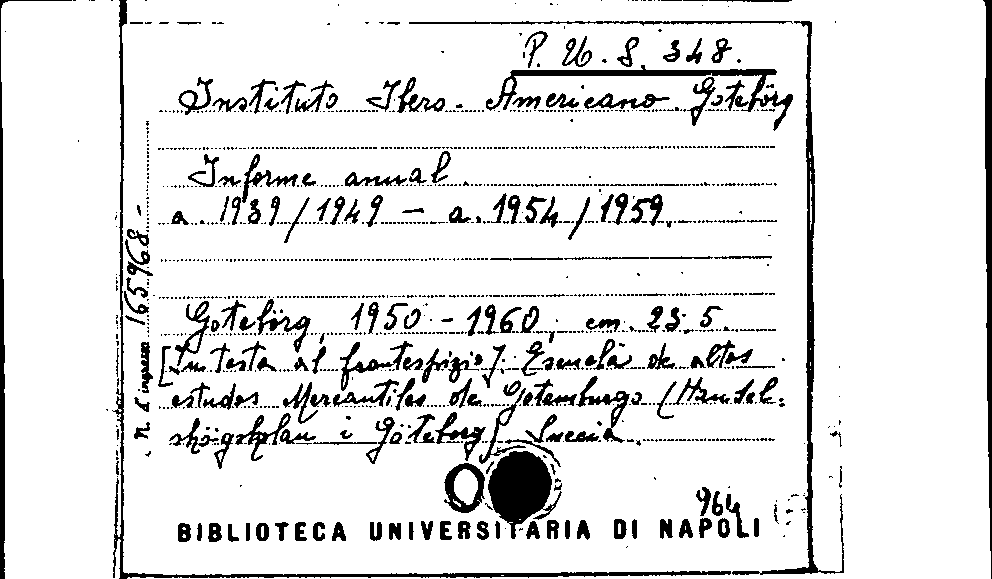 P. U. S. 348.
Instituto Ibero-Americano. Gotebörg
Informe anual.
a. 1939/1949 - a. 1954/1959.
Gotebörg, 1950-1960, cm. 23.5.
[In testa al frontespizio]: Escuela de altos
estudos Mercantiles de Gotemburgo (Handel-
shögskolan i Göteborg) Suecia.
n. d'ingresso 165968-
964
BIBLIOTECA UNIVERSITARIA DI NAPOLI